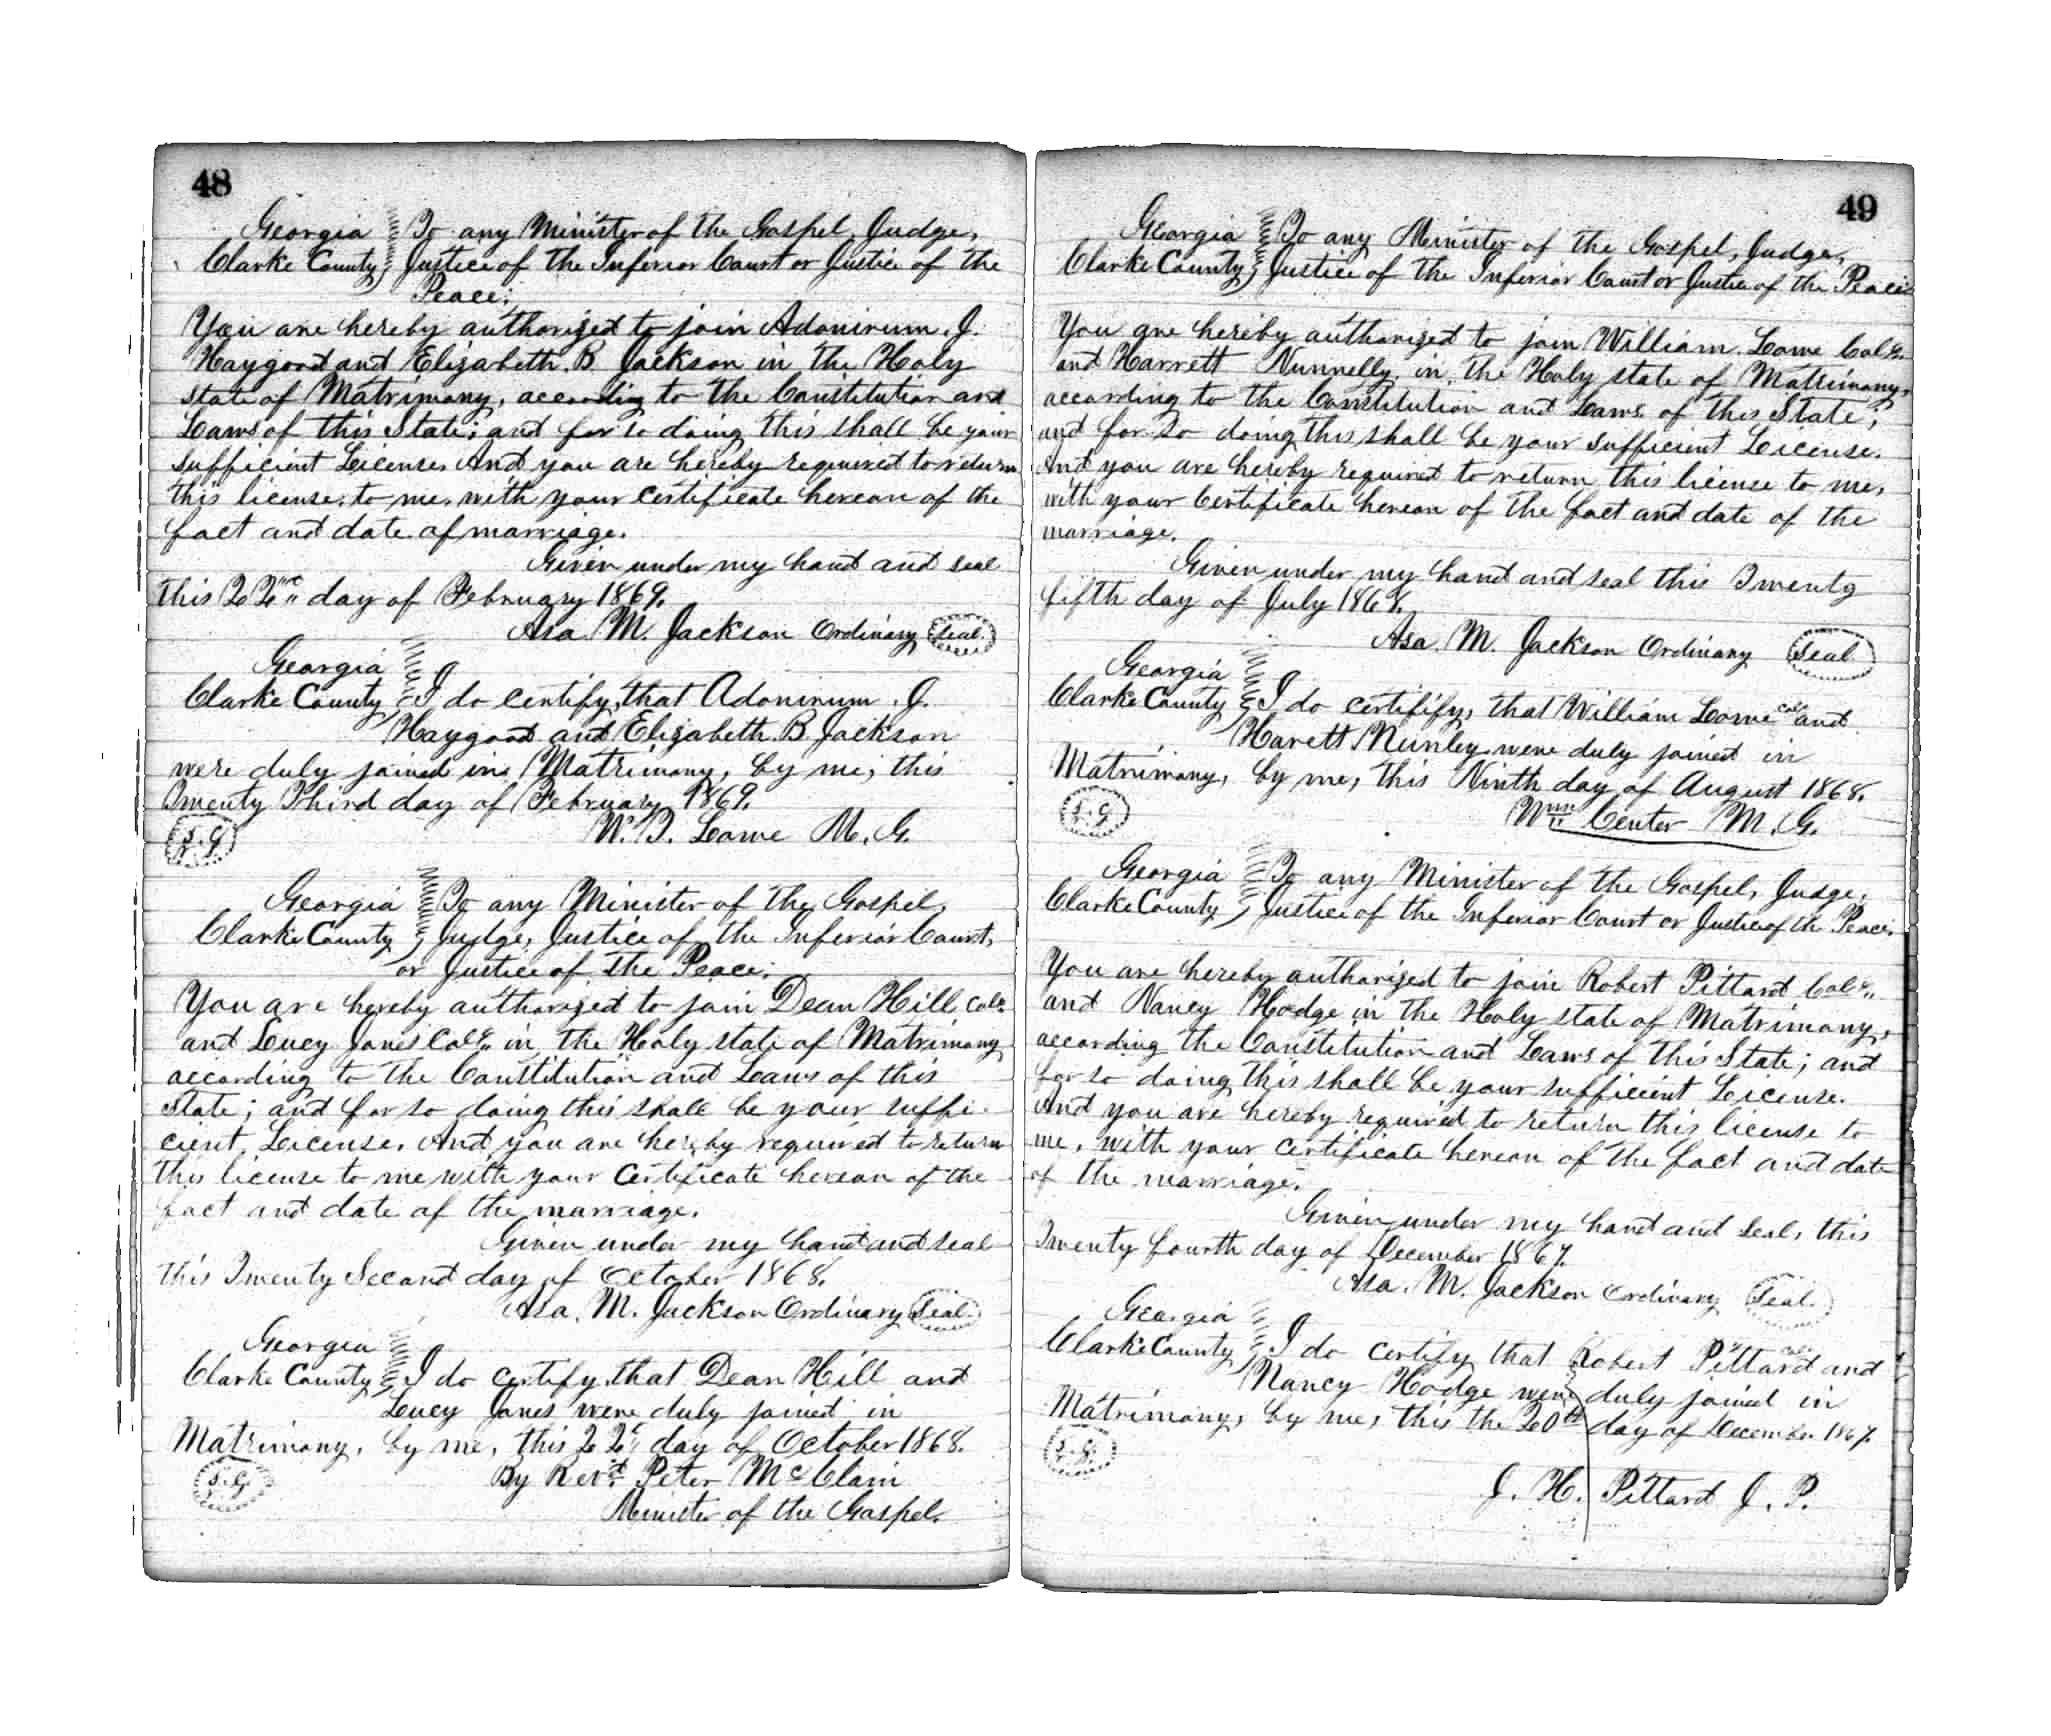 48
Georgia To any Minister of the Gospel, Judge,
Clarke County, Justice of the Inferior Court or Justice of the
Peace;
You are hereby authorized to join Adonirum. J.
Haygood and Elizabeth. B Jackson in the Holy
state of Matrimony, according to the Constitution and
Laws of this State; and for so doing this shall be your
sufficient License. And you are hereby required to return
this license to me, with your certificate hereon of the
fact and date of marriage.
Given under my hand and seal
this 22nd day of February 1869.
Asa. M. Jackson Ordinary Seal.
Georgia
Clarke County I do certify, that Adonirum. J.
Haygood and Elizabeth. B Jackson
were duly joined in Matrimony, by me, this
Twenty Third day of February 1869.
W. D. Lowe M. G.
Georgia To any Minister of the Gospel,
Clarke County Judge, Justice of the Inferior Court,
or Justice of the Peace;
You are hereby authorized to join Dean Hill Cold
and Lucy Jones Cold in the Holy state of Matrimony
according to the Constitution and Laws of this
State; and for so doing this shall be your suffi-
cient License. And you are hereby required to return
this license to me with your certificate hereon of the
fact and date of the marriage.
Given under my hand and seal
this Twenty Second day of October 1868.
Asa. M. Jackson Ordinary Seal.
Georgia
Clarke County I do certify, that Dean Hill and
Lucy Jones were duly joined in
Matrimony, by me, this 22d day of October 1868.
By Revd. Peter McClain
Minister of the Gospel.
49
Georgia To any Minister of the Gospel, Judge,
Clarke County, Justice of the Inferior Court or Justice of the Peace
You are hereby authorized to join William Lowe Cold.
and Harrett Nunnelly, in the Holy state of Matrimony,
according to the Constitution and Laws of this State;
and for so doing this shall be your sufficient License.
And you are hereby required to return this license to me,
with your Certificate hereon of the fact and date of the
marriage.
Given under my hand and seal this Twenty
fifth day of July 1868.
Asa. M. Jackson Ordinary Seal
Georgia
Clarke County I do certifify, that William Lowe Cold and
Harett Nunley were duly joined in
Matrimony, by me, this Ninth day of August 1868.
Wm Center M. G.
Georgia To any Minister of the Gospel, Judge,
Clarke County, Justice of the Inferior Court or Justice of the Peace;
You are hereby authorized to join Robert Pittard Cold.
and Nancy Hodge in the Holy state of Matrimony,
according the Constitution and Laws of this State; and
for so doing this shall be your sufficient License.
And you are hereby required to return this license to
me, with your certificate hereon of the fact and date
of the marriage.
Given under my hand and seal, this
Twenty fourth day of December 1867.
Asa. M. Jackson Ordinary Seal.
Georgia
Clarke County I do certify that Robert Pittard Col. and
Nancy Hodge were duly joined in
Matrimony, by me, this the 20th day of December 1867.
J. H. Pittard J. P.